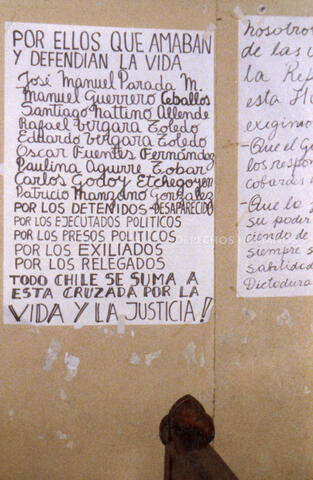 POR ELLOS QUE AMABAN
Y DEFENDIAN LA VIDA
José Manuel Parada M.
Manuel Guerrero Ceballos
Santiago Nattino Allende
Rafael Vergara Toledo
Eduardo Vergara Toledo
Oscar Fuentes Fernández
Paulina Aguirre Tobar
Carlos Godoy Etchegoyen
Patricio Manzano Gonzales
POR LOS DETENIDOS-DESAPARECIDO
POR LOS EJECUTADOS POLITICOS
POR LOS PRESOS POLITICOS
POR LOS EXILIADOS
POR LOS RELEGADOS
TODO CHILE SE SUMA A
ESTA CRUZADA POR LA
VIDA Y LA JUSTICIA!
nosotro
de las
la Rep
esta
exigimo
-Que el G
los respon
cobardes
-Que la
su poder
ciendo de
siempre
Dictadura
DERECHOS